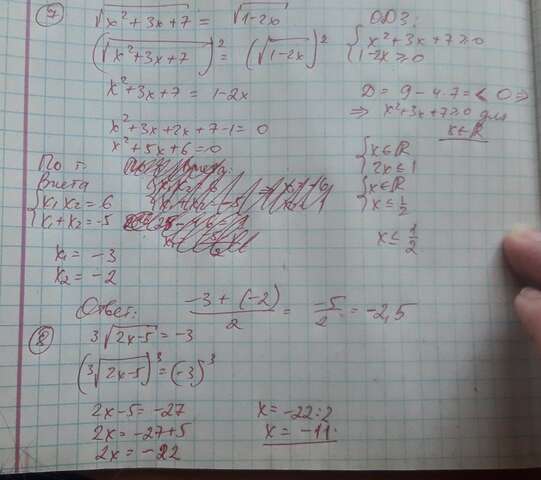 7
√x²+3x+7 = √1-2x
(√x²+3x+7)² = (√1-2x)²
x²+3x+7 = 1-2x
x²+3x+2x+7-1=0
x²+5x+6=0
По т.
Виета
{x₁x₂=6
x₁+x₂=-5
x₁ = -3
x₂ = -2
ОДЗ:
{x²+3x+7≥0
1-2x≥0
D = 9-4·7=< 0 ⇒
⇒ x²+3x+7≥0 для
x∈R
{x∈R
2x≤1
{x∈R
x≤1/2
x≤1/2
Ответ: (-3+(-2))/2 = -5/2 = -2,5
8
³√2x-5 = -3
(³√2x-5)³=(-3)³
2x-5=-27
2x=-27+5
2x=-22
x=-22:2
x=-11.